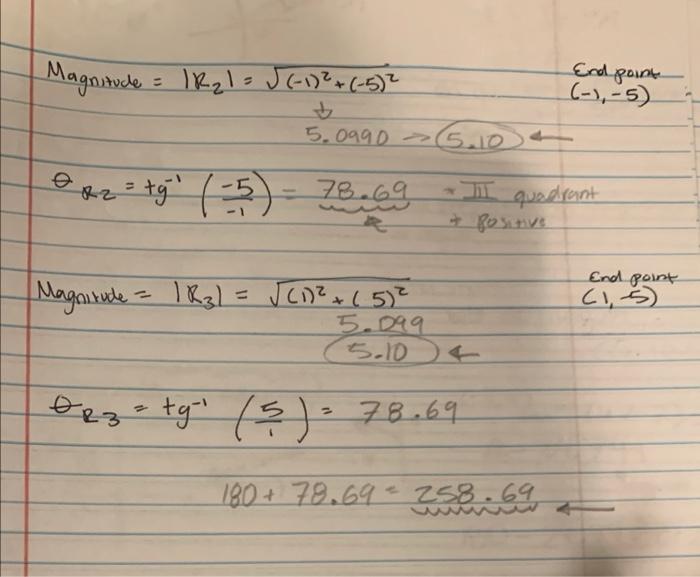 Magnitude = |R₂| = √(-1)² + (-5)²
End point
(-1, -5)
↓
5.0990 → 5.10 ←
θ R2 = tg⁻¹ (-5/-1) = 78.69 * III quadrant
+ Positive
Magnitude = |R₃| = √(1)² + (5)²
End point
(1, -5)
5.099
5.10 ←
θ R3 = tg⁻¹ (5/1) = 78.69
180 + 78.69 = 258.69 ←